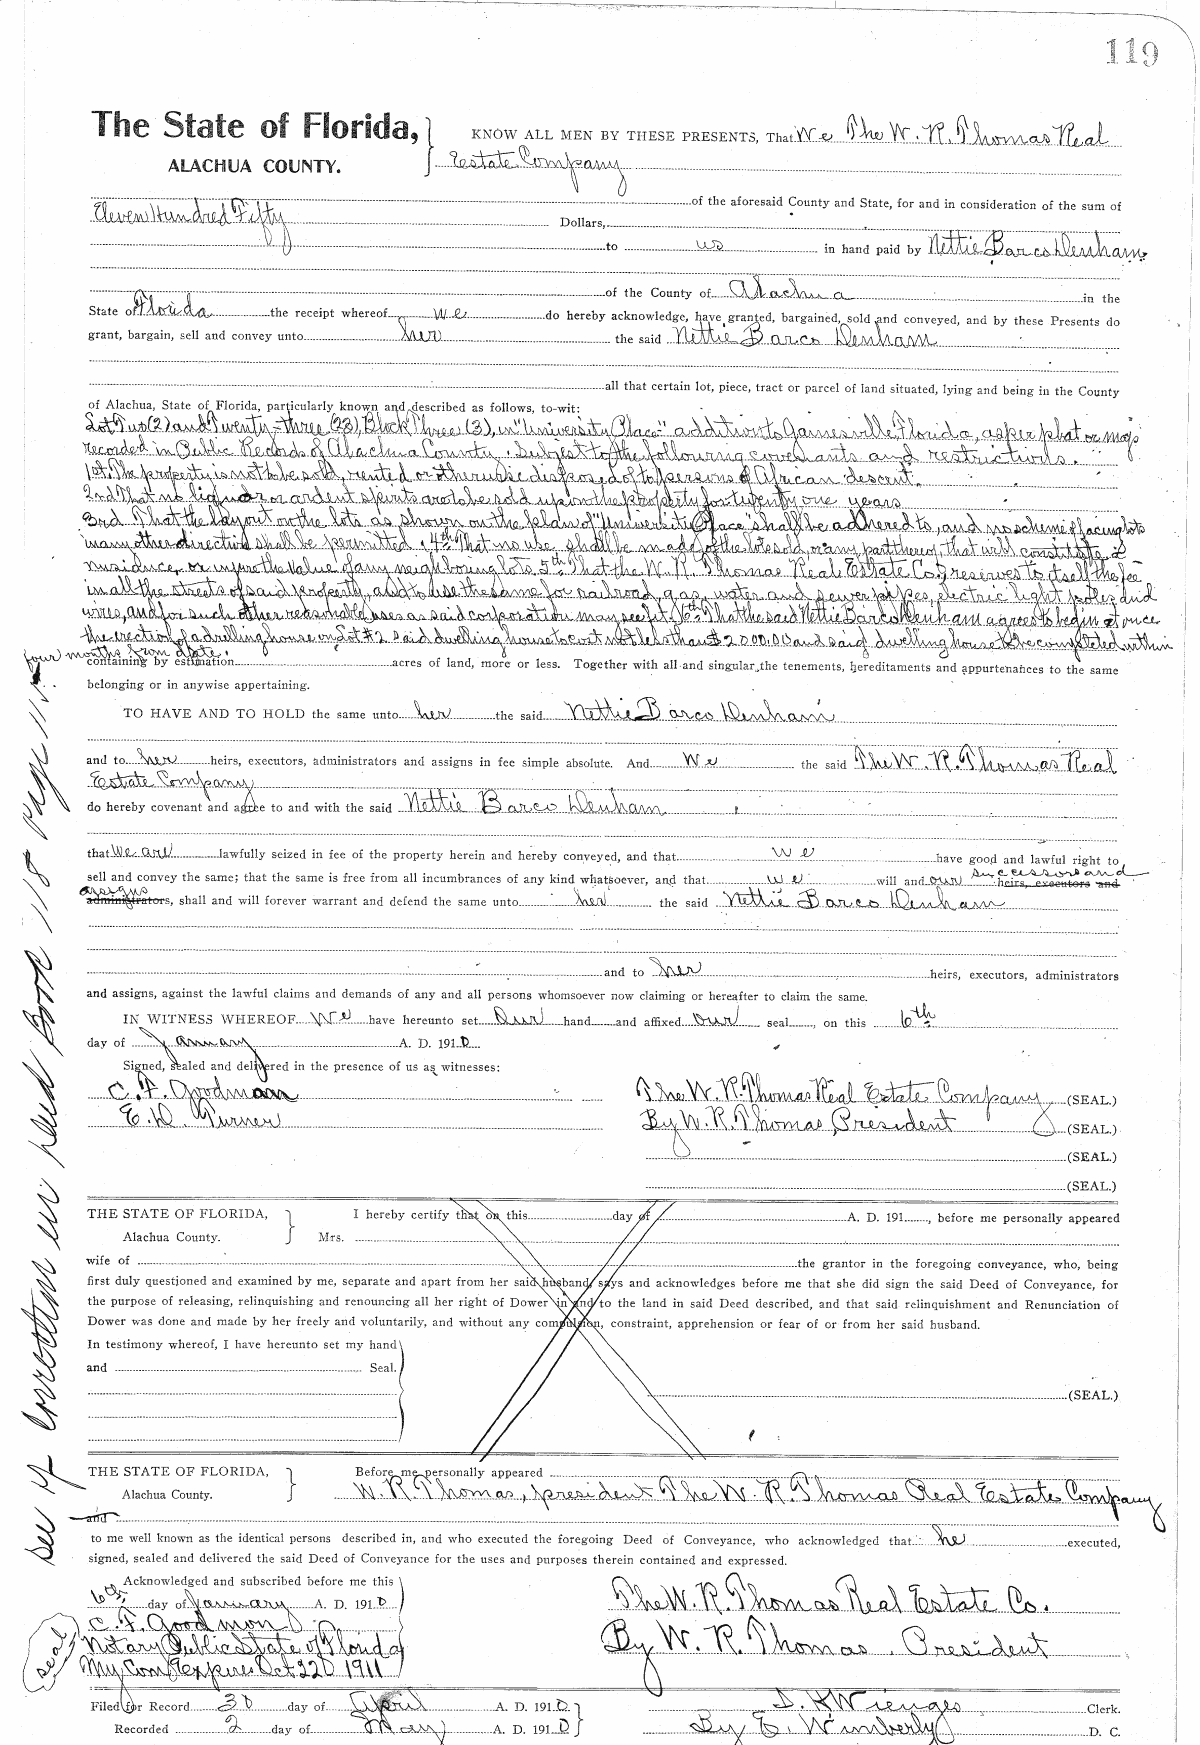 119
The State of Florida,
ALACHUA COUNTY.
KNOW ALL MEN BY THESE PRESENTS, That We The W. R. Thomas Real
Estate Company
of the aforesaid County and State, for and in consideration of the sum of
Eleven Hundred Fifty Dollars,
to us in hand paid by Nettie Barco Denham
of the County of Alachua in the
State of Florida the receipt whereof we do hereby acknowledge, have granted, bargained, sold and conveyed, and by these Presents do
grant, bargain, sell and convey unto her the said Nettie Barco Denham
all that certain lot, piece, tract or parcel of land situated, lying and being in the County
of Alachua, State of Florida, particularly known and described as follows, to-wit:
Lot Two (2) and Twenty-three (23), Block Three (3), in "University Place" addition to Gainesville, Florida, as per plat or map
recorded in Public Records of Alachua County. Subject to the following covenants and restrictions.
1st. The property is not to be sold, rented or otherwise disposed of to persons of African descent.
2nd That no liquor or ardent spirits are to be sold upon the property for twenty one years
3rd That the layout on the lots as shown on the plan of "University Place" shall be adhered to, and no scheme of facing lots
in any other direction shall be permitted. 4th That no use shall be made of the lots sold, or any part thereof, that will constitute a
nusiduce, or injure the value of any neighboring lots. 5th That the W. R. Thomas Real Estate Co. reserves to itself the fee
in all the streets of said property, and to use the same for railroad, gas, water and sewer pipes, electric light poles and
wires, and for such other reasonable uses as said corporation may see fit. 6th That the said Nettie Barco Denham agrees to begin at once
the erection of a dwelling house on Lot #2 said dwelling house to cost not less than $2000.00 and said dwelling house to be completed within
four months from date.
containing by estimation acres of land, more or less. Together with all and singular the tenements, hereditaments and appurtenances to the same
belonging or in anywise appertaining.
TO HAVE AND TO HOLD the same unto her the said Nettie Barco Denham
and to her heirs, executors, administrators and assigns in fee simple absolute. And We the said The W. R. Thomas Real
Estate Company
do hereby covenant and agree to and with the said Nettie Barco Denham
that We are lawfully seized in fee of the property herein and hereby conveyed, and that we have good and lawful right to
successors and
sell and convey the same; that the same is free from all incumbrances of any kind whatsoever, and that we will and our heirs, executors and
assigns
administrators, shall and will forever warrant and defend the same unto her the said Nettie Barco Denham
and to her heirs, executors, administrators
and assigns, against the lawful claims and demands of any and all persons whomsoever now claiming or hereafter to claim the same.
IN WITNESS WHEREOF We have hereunto set Our hand and affixed our seal, on this 6th
day of January A. D. 1910
Signed, sealed and delivered in the presence of us as witnesses:
C. F. Goodman
E. D. Turner
The W. R. Thomas Real Estate Company (SEAL.)
By W. R. Thomas, President (SEAL.)
(SEAL.)
(SEAL.)
THE STATE OF FLORIDA,
Alachua County.
I hereby certify that on this day of A. D. 191 , before me personally appeared
Mrs.
wife of the grantor in the foregoing conveyance, who, being
first duly questioned and examined by me, separate and apart from her said husband, says and acknowledges before me that she did sign the said Deed of Conveyance, for
the purpose of releasing, relinquishing and renouncing all her right of Dower in and to the land in said Deed described, and that said relinquishment and Renunciation of
Dower was done and made by her freely and voluntarily, and without any compulsion, constraint, apprehension or fear of or from her said husband.
In testimony whereof, I have hereunto set my hand
and Seal.
(SEAL.)
THE STATE OF FLORIDA,
Alachua County.
Before me personally appeared
W. R. Thomas, president The W. R. Thomas Real Estate Company
and
to me well known as the identical persons described in, and who executed the foregoing Deed of Conveyance, who acknowledged that he executed,
signed, sealed and delivered the said Deed of Conveyance for the uses and purposes therein contained and expressed.
Acknowledged and subscribed before me this
6th day of January A. D. 1910
C. F. Goodmon
Notary Public State of Florida
My Com Expires Oct 22D 1911
seal
The W. R. Thomas Real Estate Co.
By W. R. Thomas. President
Filed for Record 30 day of April A. D. 1910
Recorded 2 day of May A. D. 1910
S. H. Wienges Clerk.
By E. Wimberly D. C.
see of correction in Deed Book 118 Page